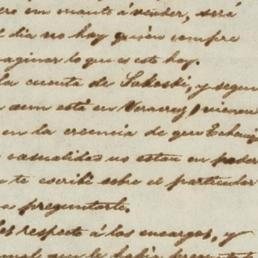 ero un manto á vender, será
dia no hay quien compre
aginar lo que es esto hay.
la cuenta de Sakoski, y segun
aun está en Veracruz vienen
en la creencia de que Echeniq
casualidad no estan en poder
te escribí sobre el particular
a preguntarle.
les respecto á los encargos, y
que te habia